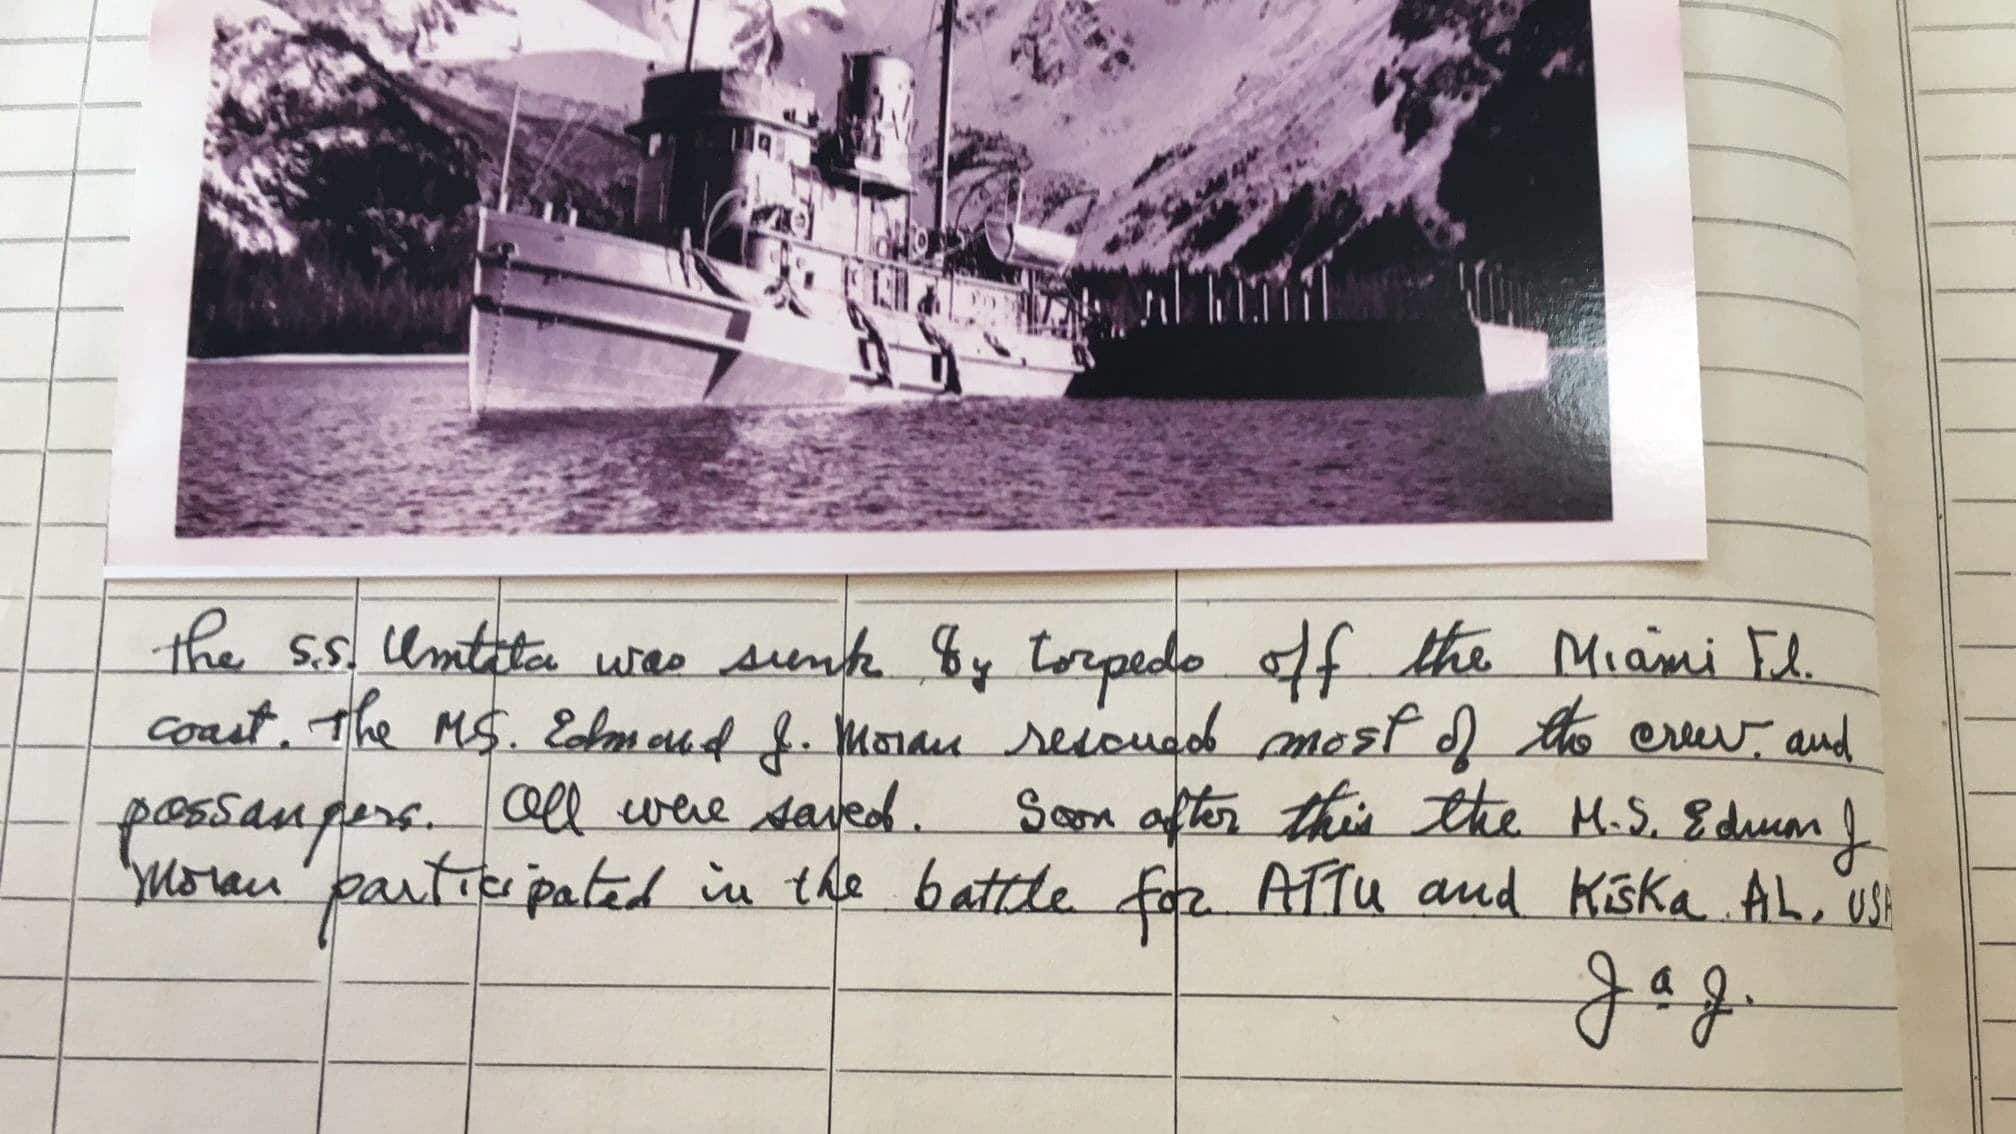 The S.S. Umtata was sunk by torpedo off the Miami Fl.
coast. The MS. Edmond J. Moran rescued most of the crew. and
passangers. All were saved. Soon after this the M.S. Edmon J
Moran participated in the battle for ATTU and Kiska. AL, USA
J a J.